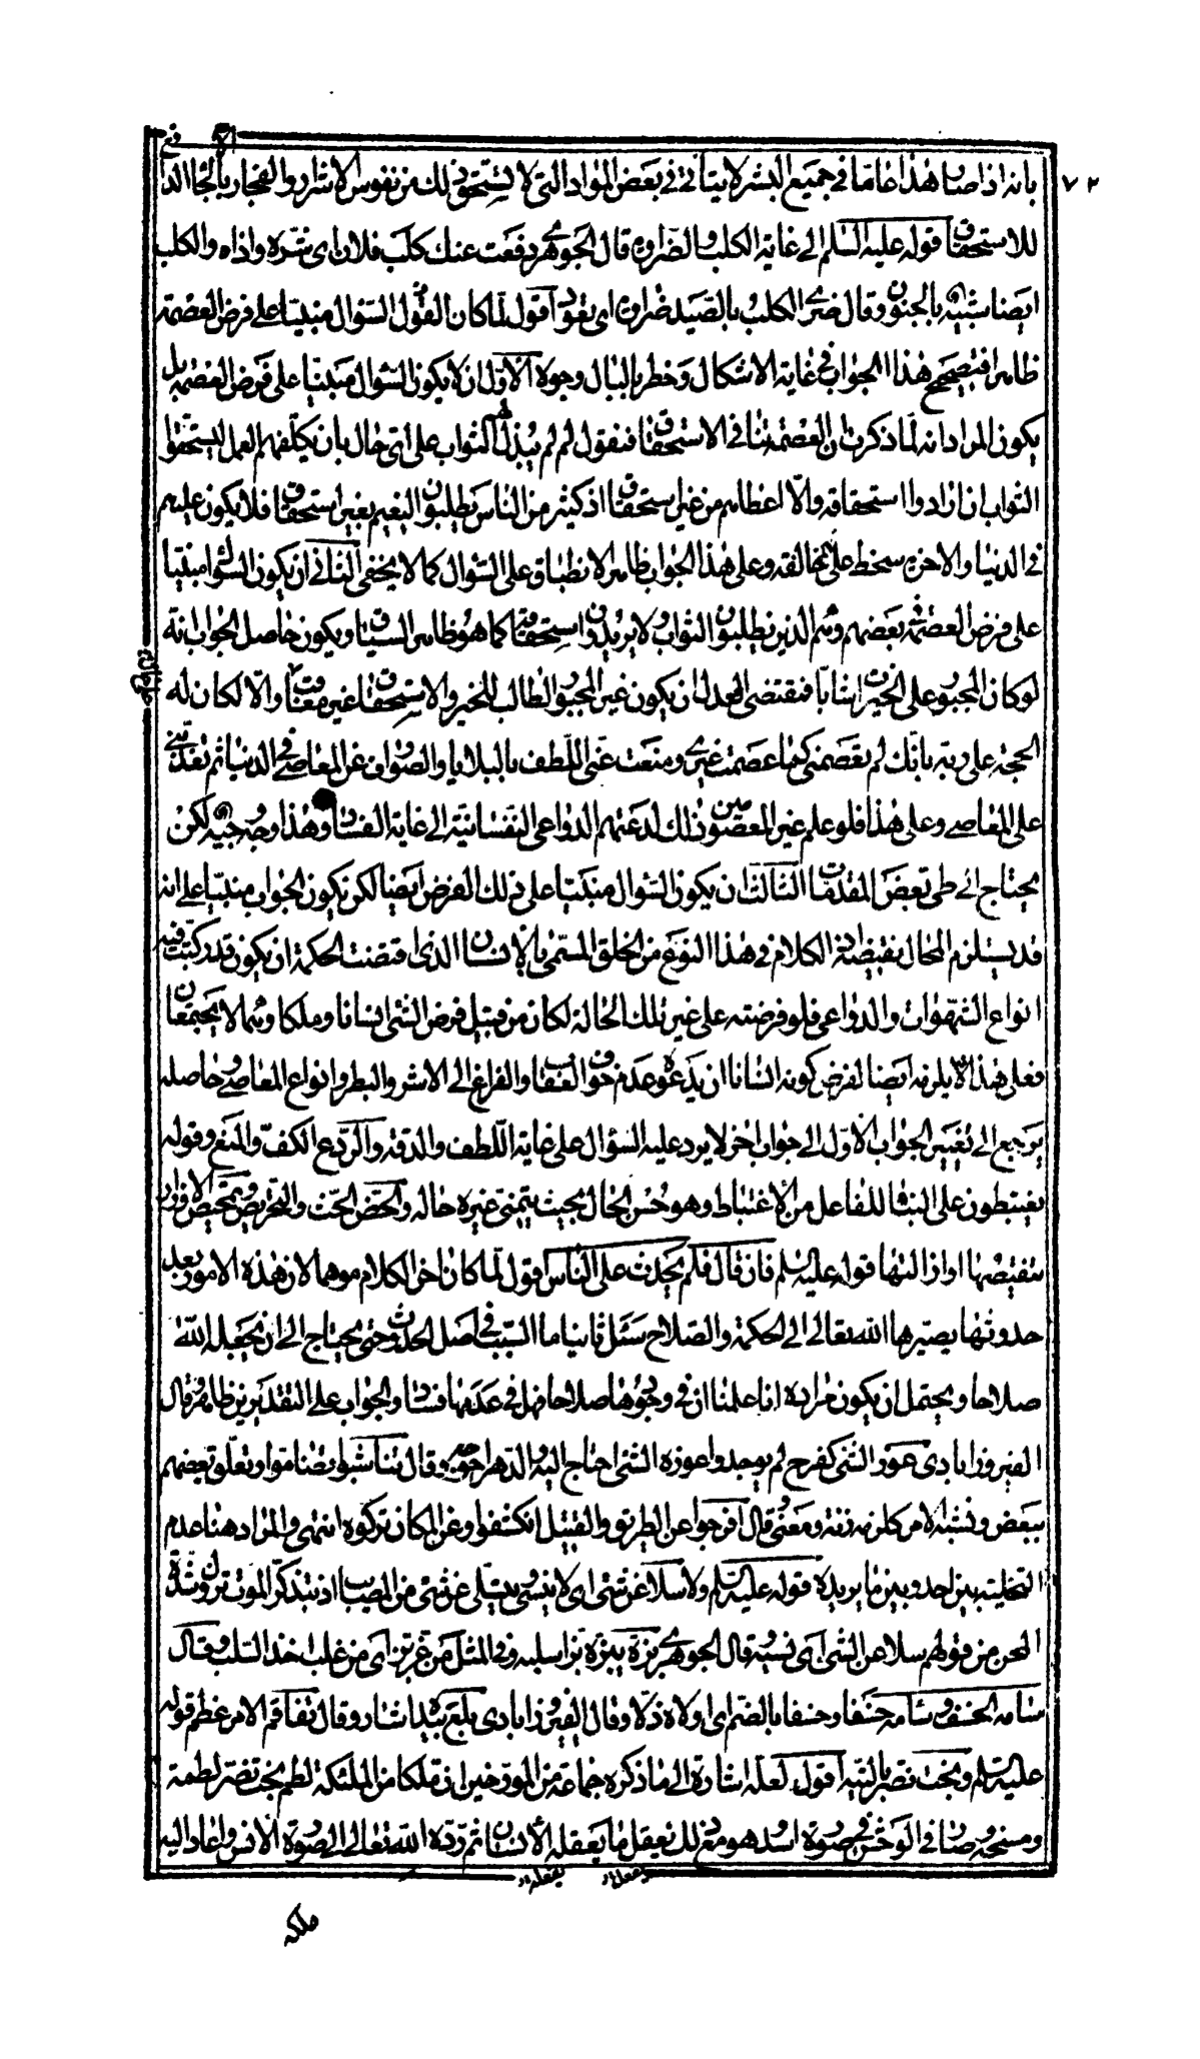 ٧٢
بانه اذا صار هذا عاما في جميع البشر لا يتأتى في بعض المواد التي لا تستحق ذلك من نفوس الاشرار والفجار
للاستحقاق قوله عليه السلم الى غاية الكلب والضراوة قال الجوهري دفعت عنك كلب فلان اى شره واذاه والكلب
ايضا شبيه بالجنون وقال ضرى الكلب بالصيد ضراوة اى تعود اقول لما كان القول السؤال مبنيا على فرض العصمة
ظاهرا فتصحيح هذا الجواب في غاية الاشكال وخطر بالبال وجوه الاول ان لا يكون السؤال مبنيا على فرض العصمة بل
يكون المراد انه لما ذكرت ان العصمة تنافى الاستحقاق فنقول لم لم يبذل لهم الثواب على اى حال بان يكلفهم العمل ليستحقوا
الثواب ان ارادوا استحقاقه والا اعطاهم من غير استحقاق اذ كثير من الناس يطلبون النعيم بغير استحقاق فلا يكون عليهم
في الدنيا والاخرة سخط على مخالفة وعلى هذا الجواب ظاهر الانطباق على السؤال كما لا يخفى الثاني ان يكون السؤال مبنيا
على فرض العصمة في بعضهم وهم الذين يطلبون الثواب ولا يريدون استحقاقه كما هو ظاهر السياق ويكون حاصل الجواب انه
لو كان المجبور على الخير مثابا فمقتضى العدل ان يكون غير المجبور الطالب للخير والاستحقاق غير معاقب والا لكان له
الحجة على ربه بانك لم تعصمني كما عصمت غيري ومنعت عني اللطف بالبلايا والصوارف عن المعاصي في الدنيا ثم تعذبني
على المعاصي وعلى هذا فلو علم غير المعصومين ذلك لدعتهم الدواعي النفسانية الى غاية الفساد وهذا وجه وجيه لكن
يحتاج الى طي بعض المقدمات الثالث ان يكون السؤال مبنيا على ذلك الفرض ايضا لكن يكون الجواب مبنيا على انه
قد يستلزم المحال نقيضه اذ الكلام في هذا النوع من الخلق المسمى بالانسان الذي اقتضت الحكمة ان يكون قد ركبت فيه
انواع الشهوات والدواعي فلو فرضته على غير تلك الحالة لكان من قبيل فرض الشئ انسانا وملكا وهما لا يجتمعان
فعلى هذا لا يلزمه ايضا لفرض كونه انسانا ان يدعوه عدم خوف العقاب والفراغ الى الاشر والبطر وانواع المعاصي وحاصله
يرجع الى تغيير الجواب الاول الى جواب اخر لا يرد عليه السؤال على غاية اللطف والدقة والردع الكف والمنع وقوله
يغتبطون على البناء للفاعل من الاغتباط وهو حسن الحال بحيث يتمنى غيره حاله والحض الحث والتحريض وتمحيص الاوزار
تنقيصها او ازالتها قوله عليه السلم فان قال فلم يحدث على الناس اقول لما كان اخر الكلام موهما لان هذه الامور بعد
حدوثها يصيرها الله تعالى الى الحكمة والصلاح سئل ثانيا ما السبب في اصل الحدوث حتى يحتاج الى ان يجعله الله
صلاحا ويحتمل ان يكون مراده انا علمنا ان في وجودها صلاحا فهل في عدمها فساد والجواب على التقديرين ظاهر قال
الفيروزابادي عوز الشئ كفرح لم يوجد واعوزه الشئ احتاج اليه والدهر احوجه وقال تناشبوا تضاموا وتعلق بعضهم
ببعض ونشبه الامر كلزمه زنة ومعنى وقال افرجوا عن الطريق والقتيل انكشفوا وعن المكان تركوه انتهى والمراد هنا عدم
التخلية بين احد وبين ما يريده قوله عليه السلم ولا سلا عن شئ اى لا ينسى ويتسلى عن شئ من المصائب اذ بتذكر الموت تزول شدة
المحن من قولهم سلا عن الشئ اى نسيه قال الجوهري بزه يبزه بزا سلبه وفي المثل من عز بز اى من غلب اخذ السلب وقال
سامه الخسف وسامه خسفا وخسفا بالضم اى اولاه ذلا وقال الفيروزابادي بلع ريقه اشار وقال تفاقم الامر عظم قوله
عليه السلم وبخت نصر بالتيه اقول لعله اشارة الى ما ذكره جماعة من المورخين ان ملكا من الملئكة لطم بخت نصر لطمة
ومسخه وصار في الوحش في صورة اسد وهو مع ذلك يعقل ما يعقله الانسان ثم رده الله تعالى الى صورة الانس واعاد اليه
ملكه